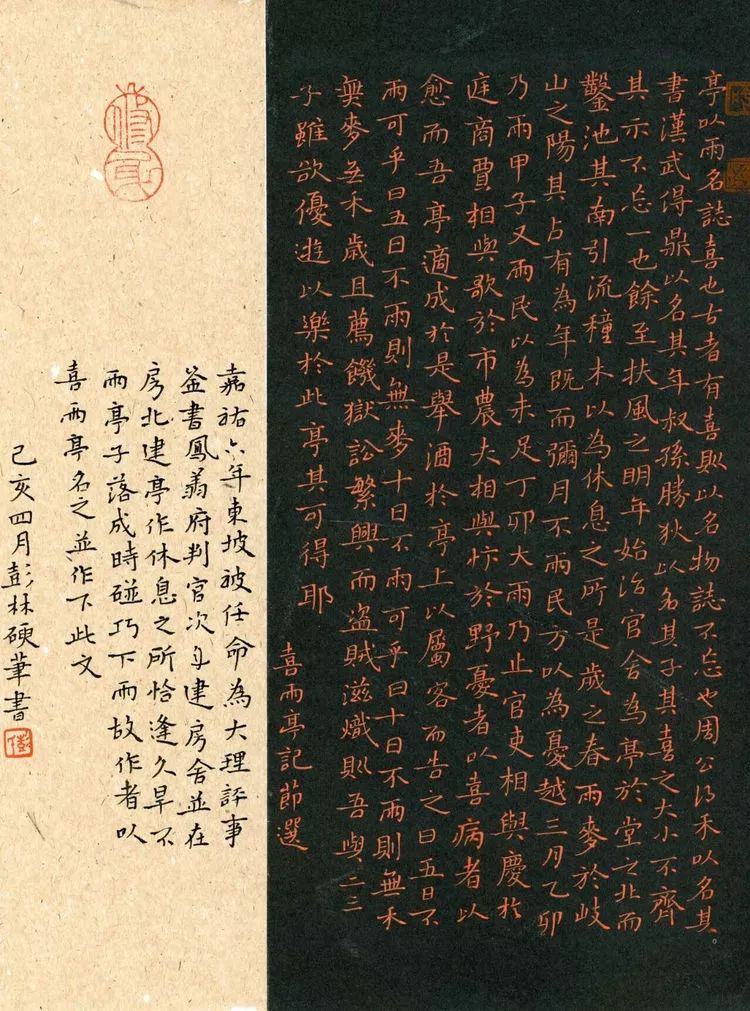 亭以雨名誌喜也古者有喜則以名物誌不忘也周公得禾以名其
書漢武得鼎以名其年叔孫勝狄以名其子其喜之大小不齊
其示不忘一也餘至扶風之明年始治官舍為亭於堂之北而
鑿池其南引流種木以為休息之所是歲之春雨麥於岐
山之陽其占有為年既而彌月不雨民方以為憂越三月乙卯
乃雨甲子又雨民以為未足丁卯大雨乃止官吏相與慶於
庭商賈相與歌於市農夫相與忭於野憂者以喜病者以
愈而吾亭適成於是舉酒於亭上以屬客而告之曰五日不
雨可乎曰五日不雨則無麥十日不雨可乎曰十日不雨則無禾
無麥無禾歲且薦饑獄訟繁興而盜賊滋熾則吾與二三
子雖欲優遊以樂於此亭其可得耶
喜雨亭記節選
嘉祐六年東坡被任命為大理評事
簽書鳳翔府判官次年建房舍並在
房北建亭作休息之所恰逢久旱不
雨亭子落成時碰巧下雨故作者以
喜雨亭名之並作下此文
己亥四月彭林硬筆書